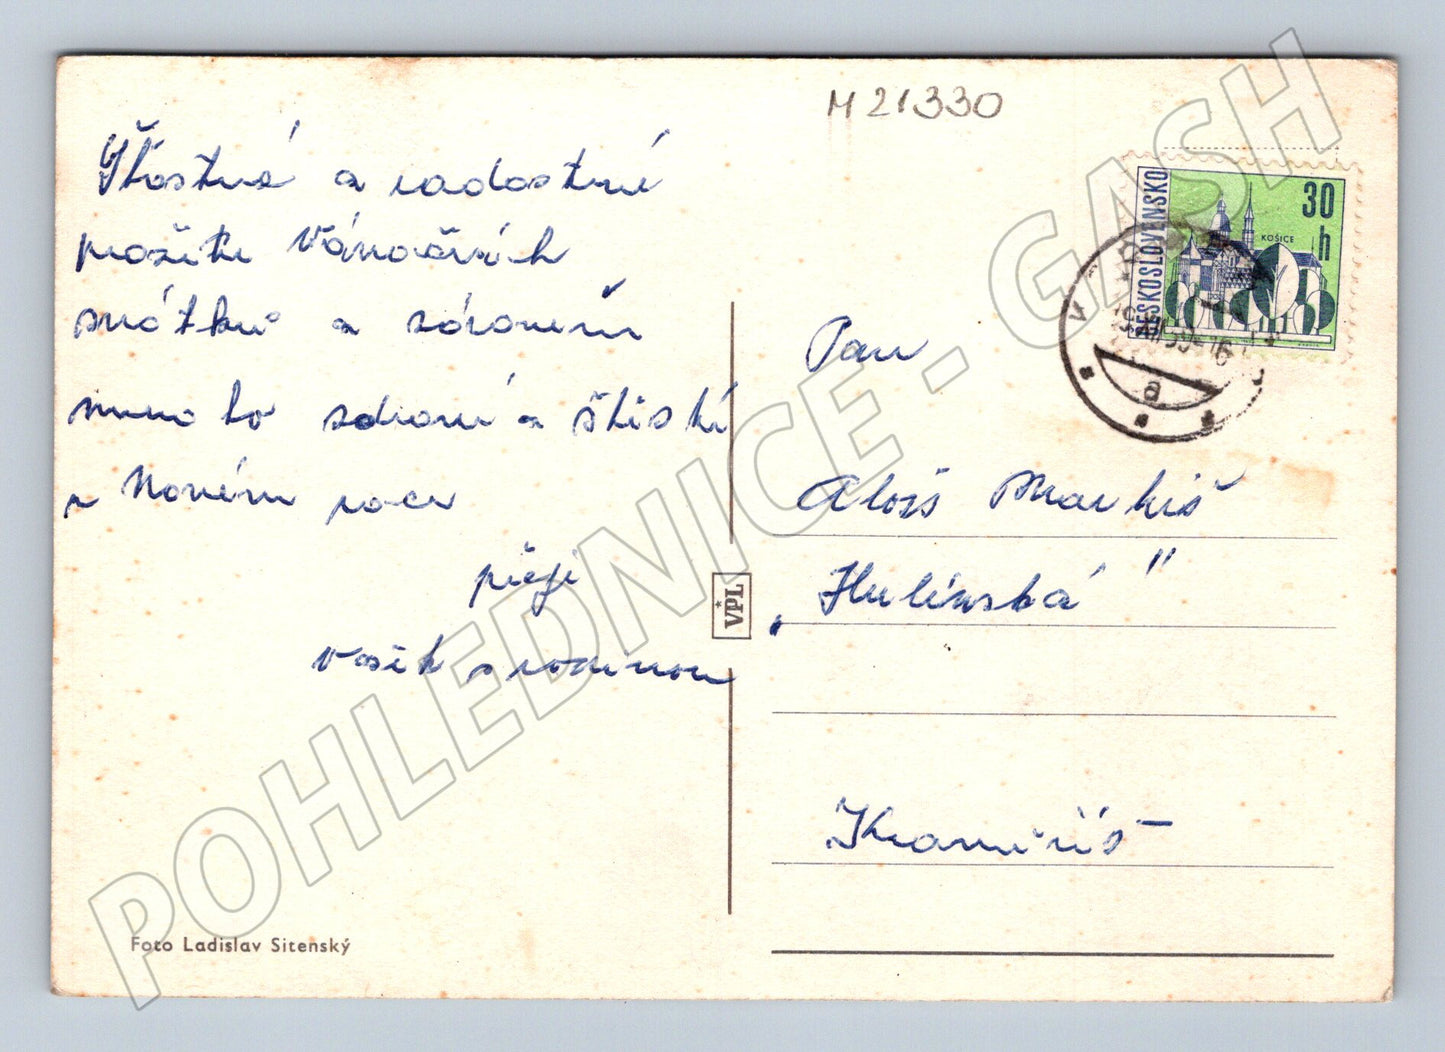 M 21330
Šťastné a radostné
prožití Vánočních
svátků a zároveň
mnoho zdraví a štěstí
v Novém roce
přeje
Vašík s rodinou
Foto Ladislav Sitenský
VPL
ČESKOSLOVENSKO
30 h
KOŠICE
a
Pan
Alois Markiš
„Hulínská"
Kroměříž
POHLEDNICE - GASH